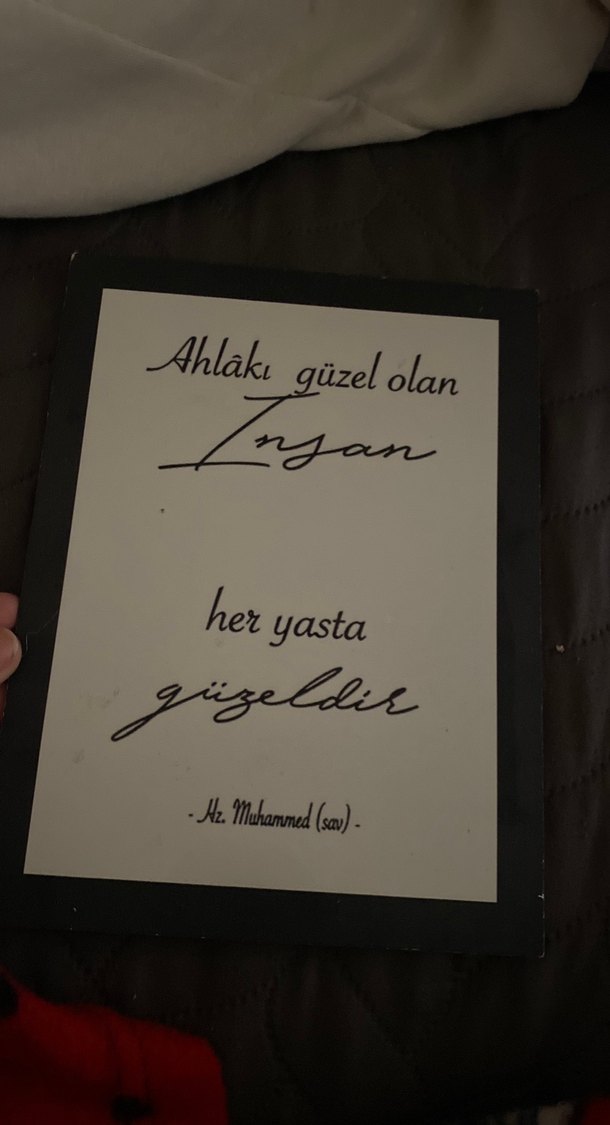 Ahlâkı güzel olan
Insan
her yasta
güzeldir
- Hz. Muhammed (sav) -